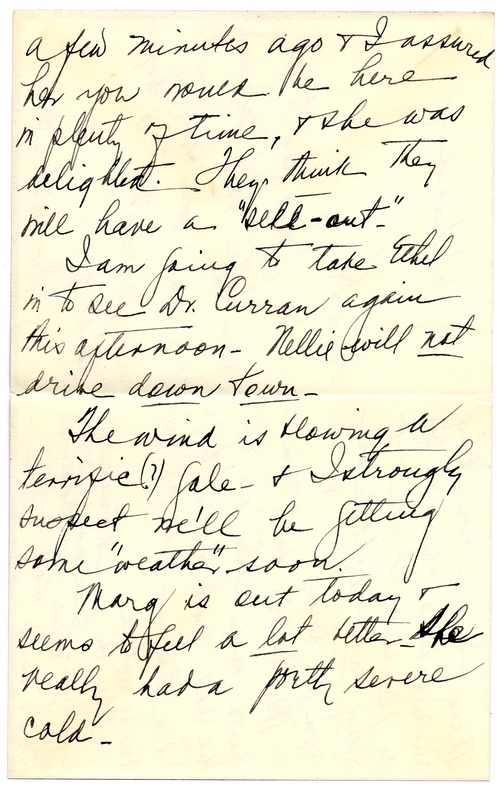 a few minutes ago & I assured
her you would be here
in plenty of time, & she was
delighted. They think they
will have a "sell-out-"
I am going to take Ethel
in to see Dr. Curran again
this afternoon - Nellie will not
drive down town -
The wind is blowing a
terrific (?) gale - & I strongly
suspect we'll be getting
some "weather" soon.
Marg is out today &
seems to feel a lot better - She
really had a pretty severe
cold -